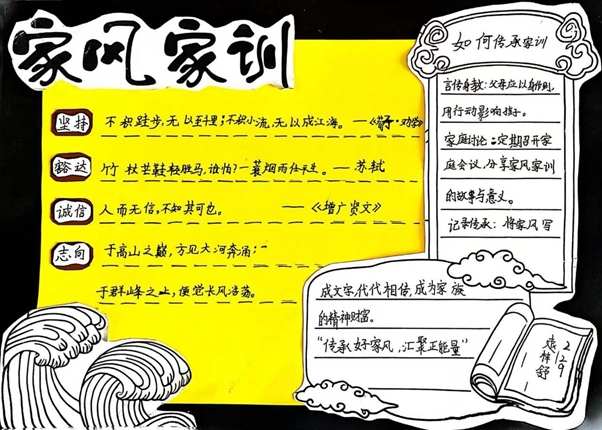 家风家训
坚持 不积跬步,无以至千里;不积小流,无以成江海。—《荀子·劝学》
豁达 竹杖芒鞋轻胜马,谁怕?一蓑烟雨任平生。— 苏轼
诚信 人而无信,不知其可也。——《增广贤文》
志向 于高山之巅,方见大河奔涌;
于群峰之上,便觉长风浩荡。
如何传承家训
言传身教:父母应以身作则,
用行动影响孩子。
家庭讨论:定期召开家
庭会议,分享家风家训
的故事与意义。
记录传承:将家风写
成文字,代代相传,成为家族
的精神财富。
“传承好家风,汇聚正能量”
2129